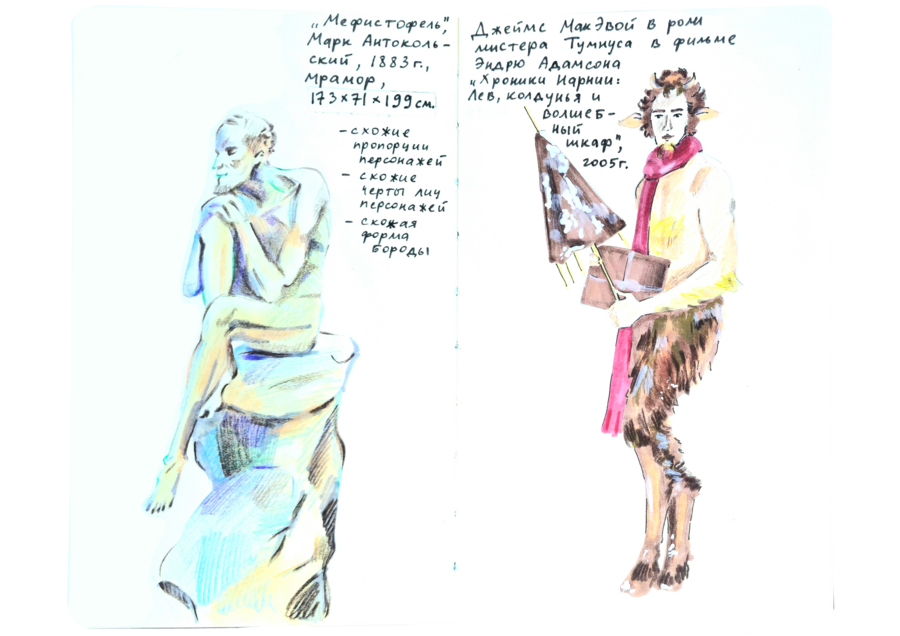 „Мефистофель",
Марк Антоколь-
ский, 1883 г.,
мрамор,
173×71×199 см.
- схожие
пропорции
персонажей
- схожие
черты лиц
персонажей
- схожая
форма
бороды
Джеймс МакЭвой в роли
мистера Тумнуса в фильме
Эндрю Адамсона
„Хроники Нарнии:
Лев, колдунья и
волшеб-
ный
шкаф",
2005г.